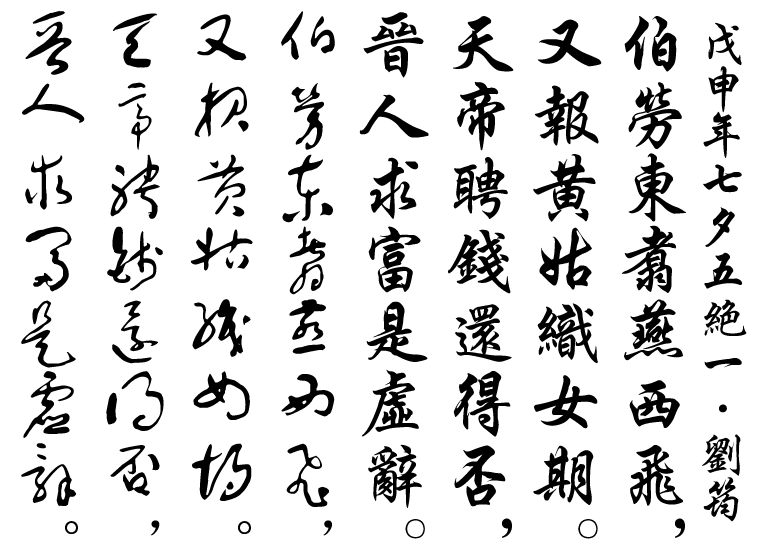 戊申年七夕五絕一·劉筠
伯勞東翥燕西飛，
又報黃姑織女期。
天帝聘錢還得否，
晉人求富是虛辭。
伯勞東翥燕西飛，
又報黃姑織女期。
天帝聘錢還得否，
晉人求富是虛辭。